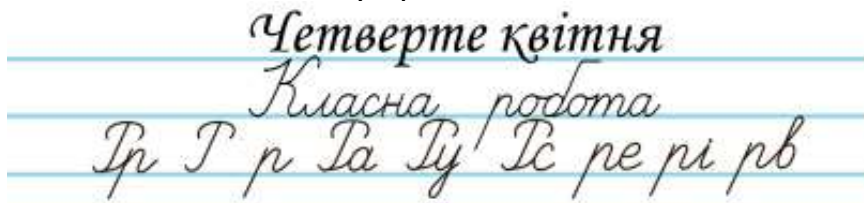 Четверте квітня
Класна робота
Рр Р р Ра Ру Рс ре рі рв